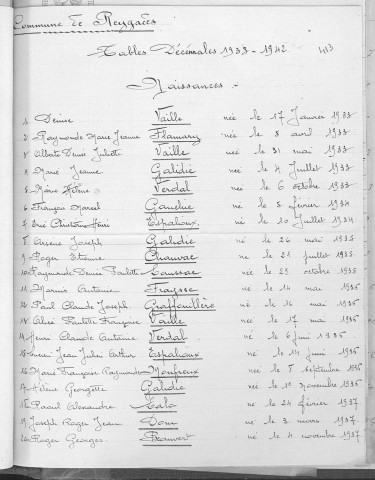 Commune de Peygades
Tables Décennales 1933-1942 413
Naissances
1 Denise Vaille née le 17 Janvier 1933
2 Raymonde Marie Jeanne Flamary née le 8 avril 1933
3 Denise Juliette Vaille née le 31 mai 1933
4 Marie Jeanne Galidie née le 4 Juillet 1933
5 Marie Verdal née le 6 octobre 1933
6 François Marcel née le 5 février 1934
7 Christiane Espalioux né le 10 Juillet 1934
8 Joseph Galidie né le 26 mai 1935
9 Roger Etienne Chauvac né le 21 Juillet 1935
10 Raymonde Denise Paulette née le 29 octobre 1935
11 Antoine Fraysse né le 14 mai 1936
12 Paul Claude Joseph Graffouillère né le 16 mai 1936
13 Paulette Françoise Vaille née le 17 mai 1936
14 Henri Claude Antoine Verdal né le 6 Juin 1936
15 Jean Julien Arthur Espalioux né le 14 Juin 1936
16 Marie Françoise Raymonde née le 5 Septembre 1936
17 Hélène Georgette Galidie née le 1 novembre 1936
18 Raoul Alexandre né le 24 février 1937
19 Joseph Roger Jean né le 3 mars 1937
20 Roger Georges né le 4 novembre 1937